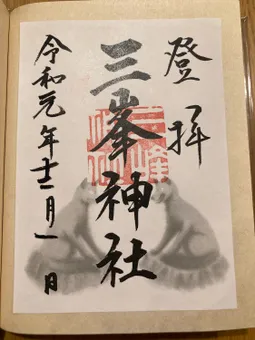 登拝
三峯神社
令和元年十二月一日